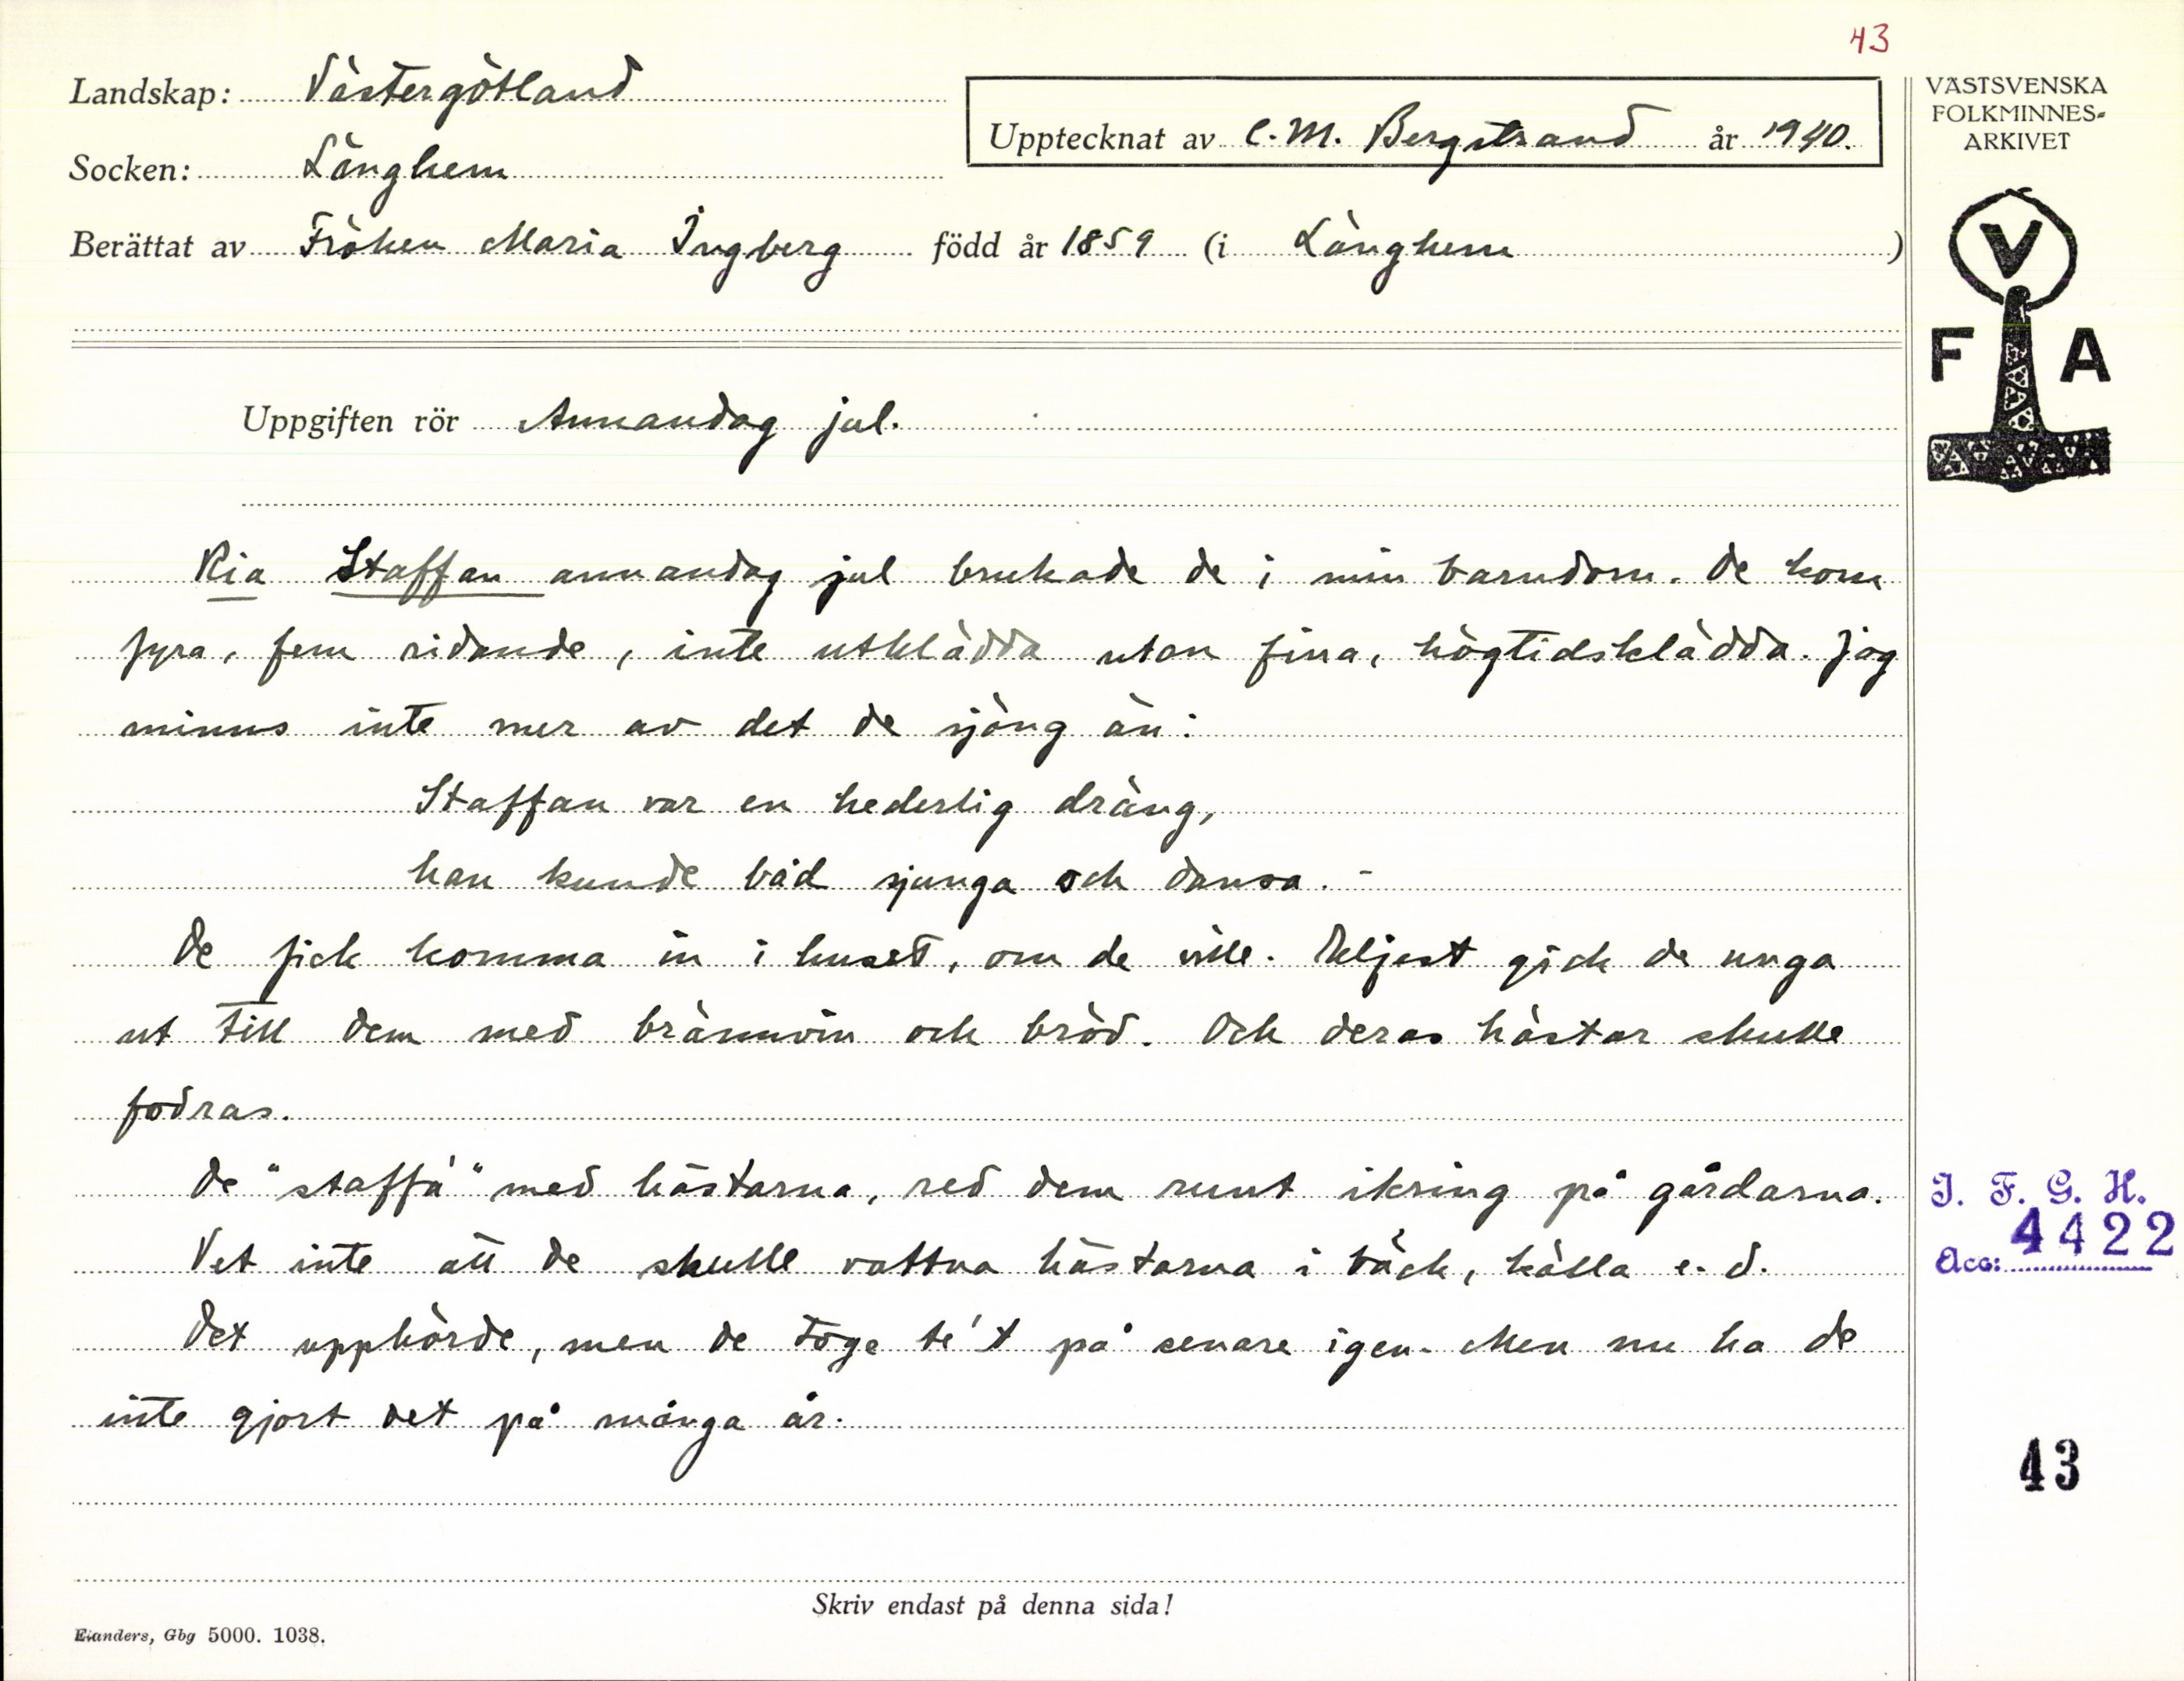 43
Landskap: Västergötland
Socken: Länghem
Upptecknat av C. M. Bergstrand år 1940.
Berättat av Fröken Maria Ingberg född år 1859 (i Länghem )
VÄSTSVENSKA
FOLKMINNES-
ARKIVET
V
F A
Uppgiften rör Annandag jul.
Ria Staffan annandag jul brukade de i min barndom. De kom
fyra, fem ridande, inte utklädda utan fina, högtidsklädda. Jag
minns inte mer av det de sjöng än:
Staffan var en hederlig dräng,
han kunde båd sjunga och dansa. -
De fick komma in i huset, om de ville. Eljest gick de unga
ut till dem med brännvin och bröd. Och deras hästar skulle
fodras.
De "staffa'" med hästarna, red dem runt ikring på gårdarna.
Vet inte att de skulle vattna hästarna i bäck, källa e. d.
Det upphörde, men de toge te't på senare igen. Men nu ha de
inte gjort det på många år.
I. F. G. H.
Acc: 4422
43
Skriv endast på denna sida!
Elanders, Gbg 5000. 1038.